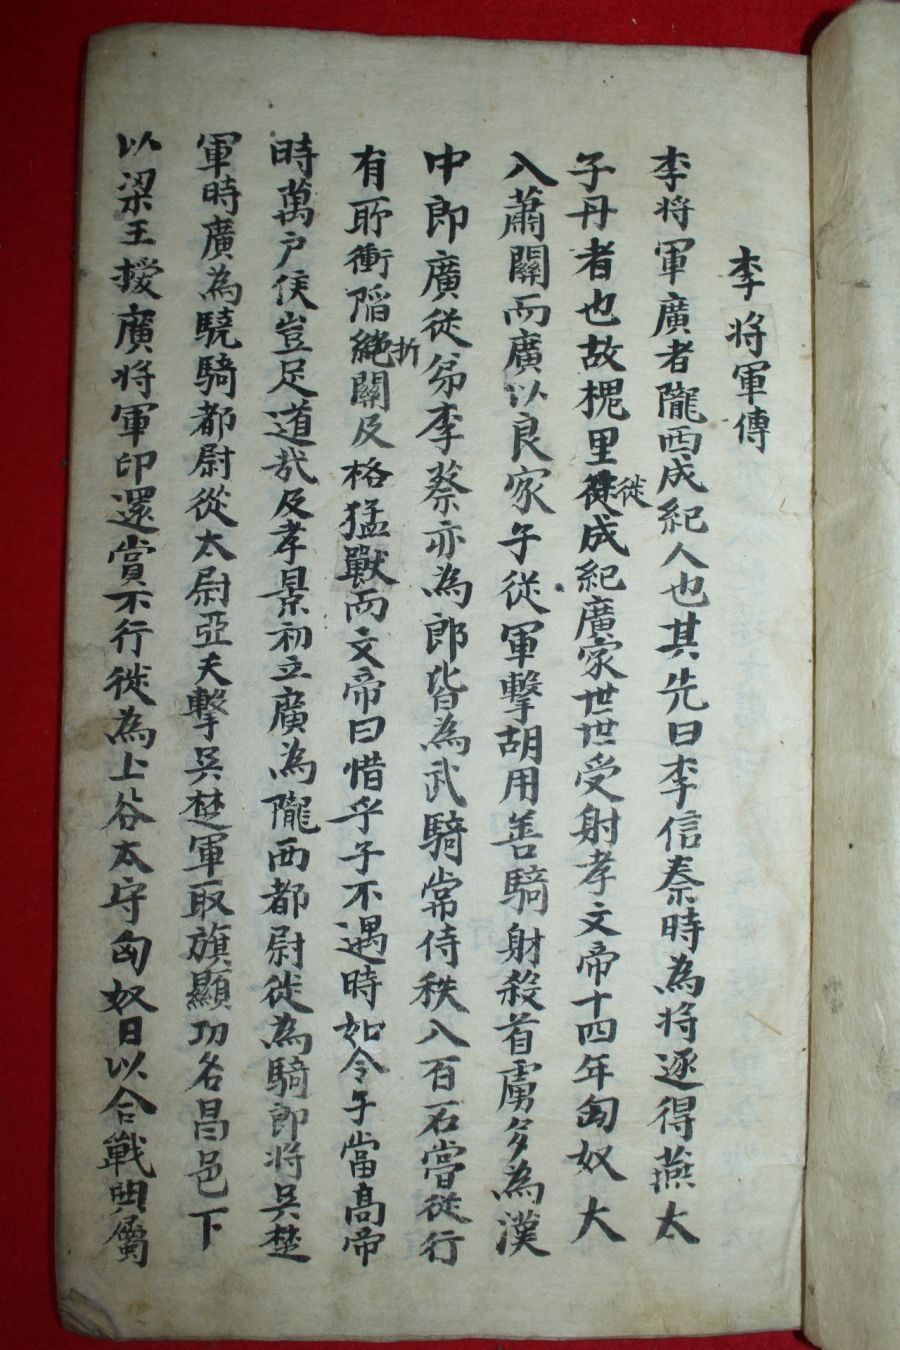 李將軍傳
李將軍廣者隴西成紀人也其先曰李信秦時為將逐得燕太
子丹者也故槐里徙成紀廣家世世受射孝文帝十四年匈奴大
入蕭關而廣以良家子從軍擊胡用善騎財殺首虜多為漢
中郎廣從弟李蔡亦為郎皆為武騎常侍秩八百石嘗從行
有所衝陷折關及格猛獸而文帝曰惜乎子不遇時如令子當高帝
時萬戶侯豈足道哉及孝景初立廣為隴西都尉徙為騎郎將吳楚
軍時廣為驍騎都尉從太尉亞夫擊吳楚軍取旗顯功名昌邑下
以梁王授廣將軍印還賞不行徙為上谷太守匈奴日以合戰典屬